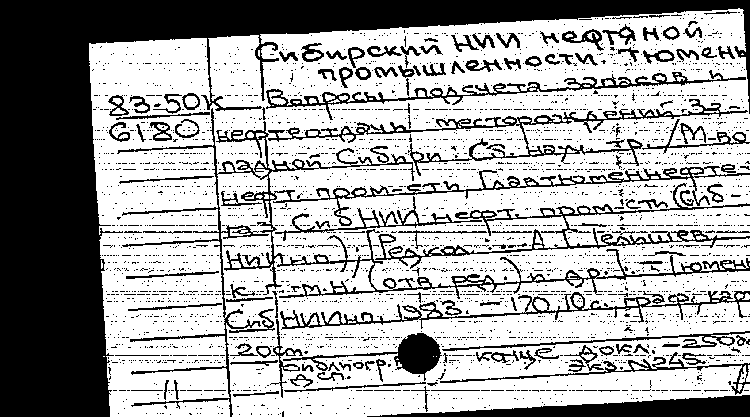 Сибирский НИИ нефтяной
промышленности. Тюмень
83-50К Вопросы подсчета запасов и
6180 нефтеотдачи месторождений За-
падной Сибири: Сб. науч. тр. /М-во
нефт. пром-сти, Главтюменнефте-
газ, СибНИИ нефт. пром-сти (Сиб-
НИИНП); [Редкол.: ...А.Г. Телишев,
к.г.-м.н. (отв. ред.) и др.]. - Тюмень
СибНИИНП, 1983. - 170, 10 с., граф., карт
20 см.
Библиогр. в конце докл. - 250э
ДСП. Экз. №245
11